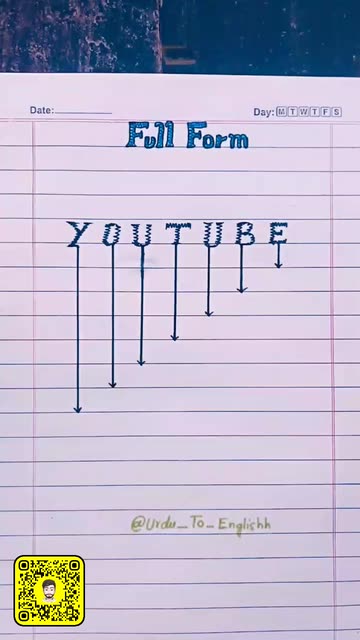 Date:
Day: M T W T F S
Full Form
YOUTUBE
@Urdu_To_Englishh